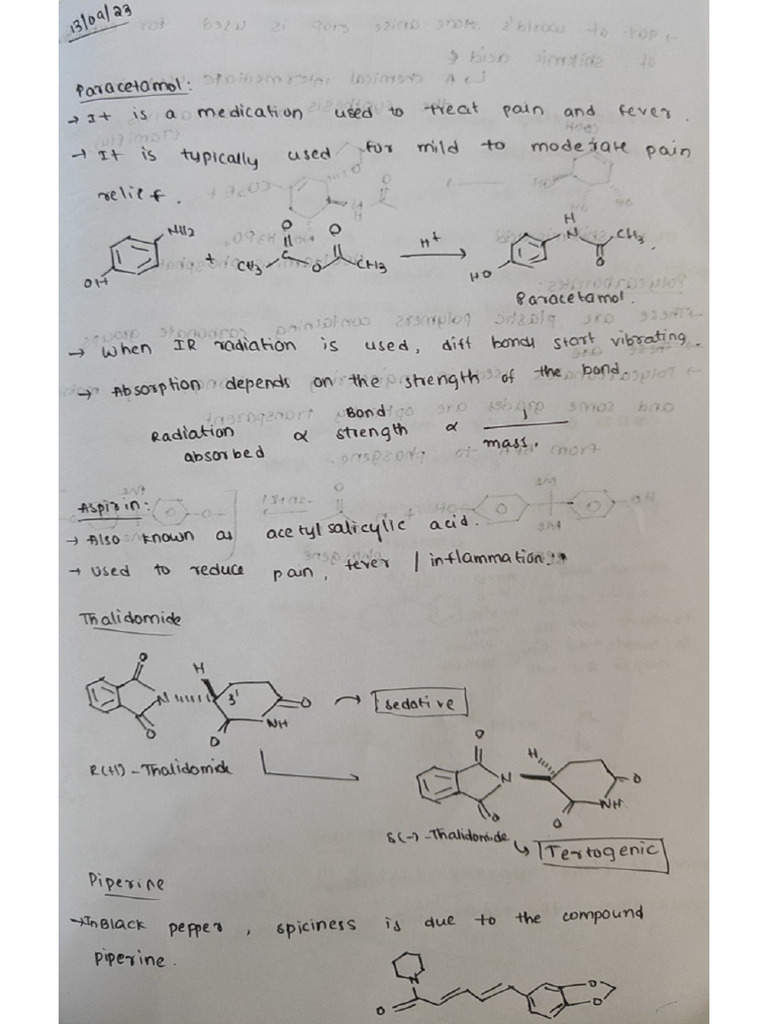 13/09/23
Paracetamol:
→ It is a medication used to treat pain and fever.
→ It is typically used for mild to moderate pain
relief.
NH2
OH
+
CH3
C
O
O
O
CH3
H+
HO
H
N
O
CH3
Paracetamol.
→ When IR radiation is used, diff bonds start vibrating.
→ Absorption depends on the strength of the bond.
Radiation absorbed ∝ Bond strength ∝ 1/mass.
Aspirin:
→ Also known as acetyl salicylic acid.
→ Used to reduce pain, fever / inflammation.
Thalidomide
O
N
O
H
3'
O
NH
O
→ Sedative
R(+) - Thalidomide
O
N
O
H
O
NH
O
S(-) - Thalidomide
Tertogenic
Piperine
→ In Black pepper, spiciness is due to the compound
piperine.
N
O
O
O